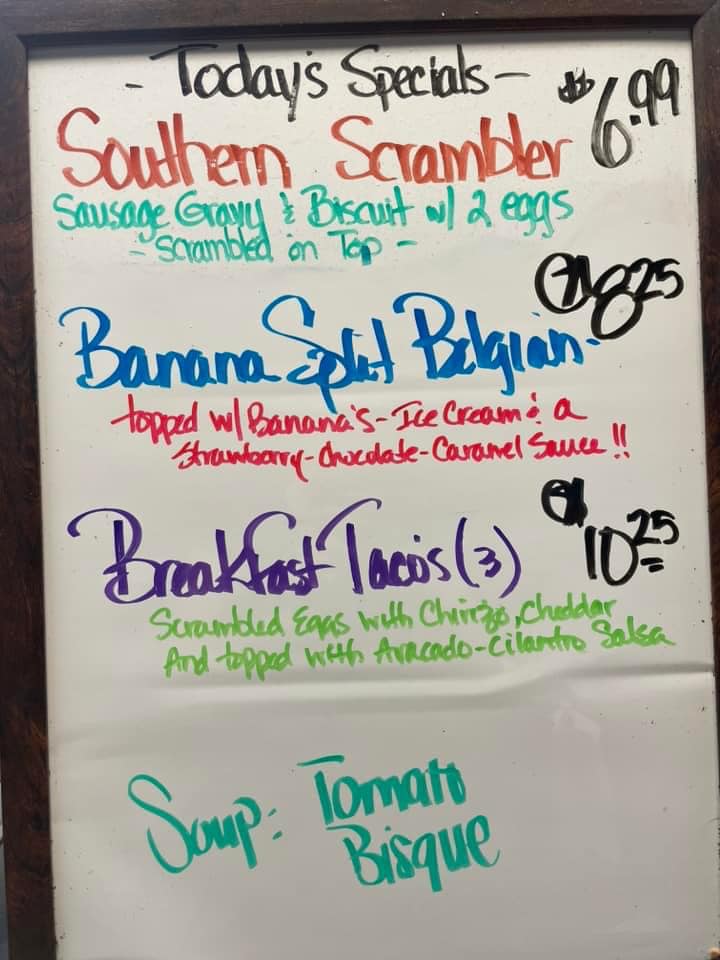 - Today's Specials -
$6.99
Southern Scrambler
Sausage Gravy & Biscuit w/ 2 eggs
- Scrambled on Top -
$8.25
Banana Split Belgian-
topped w/ Banana's - Ice Cream & a
Strawberry-Chocolate-Caramel Sauce!!
$10.25
Breakfast Taco's (3)
Scrambled Eggs with Chirizo, Cheddar
And topped with Avacado-Cilantro Salsa
Soup: Tomato
Bisque